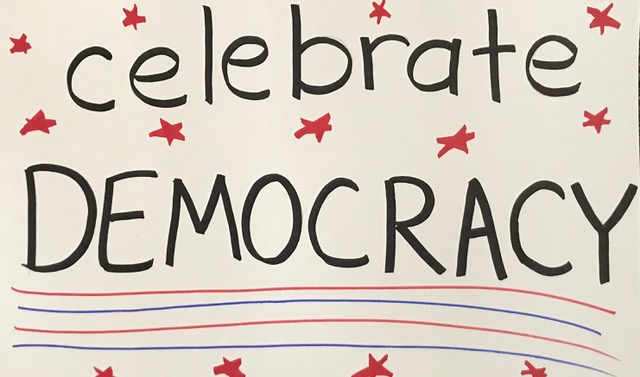 celebrate
DEMOCRACY